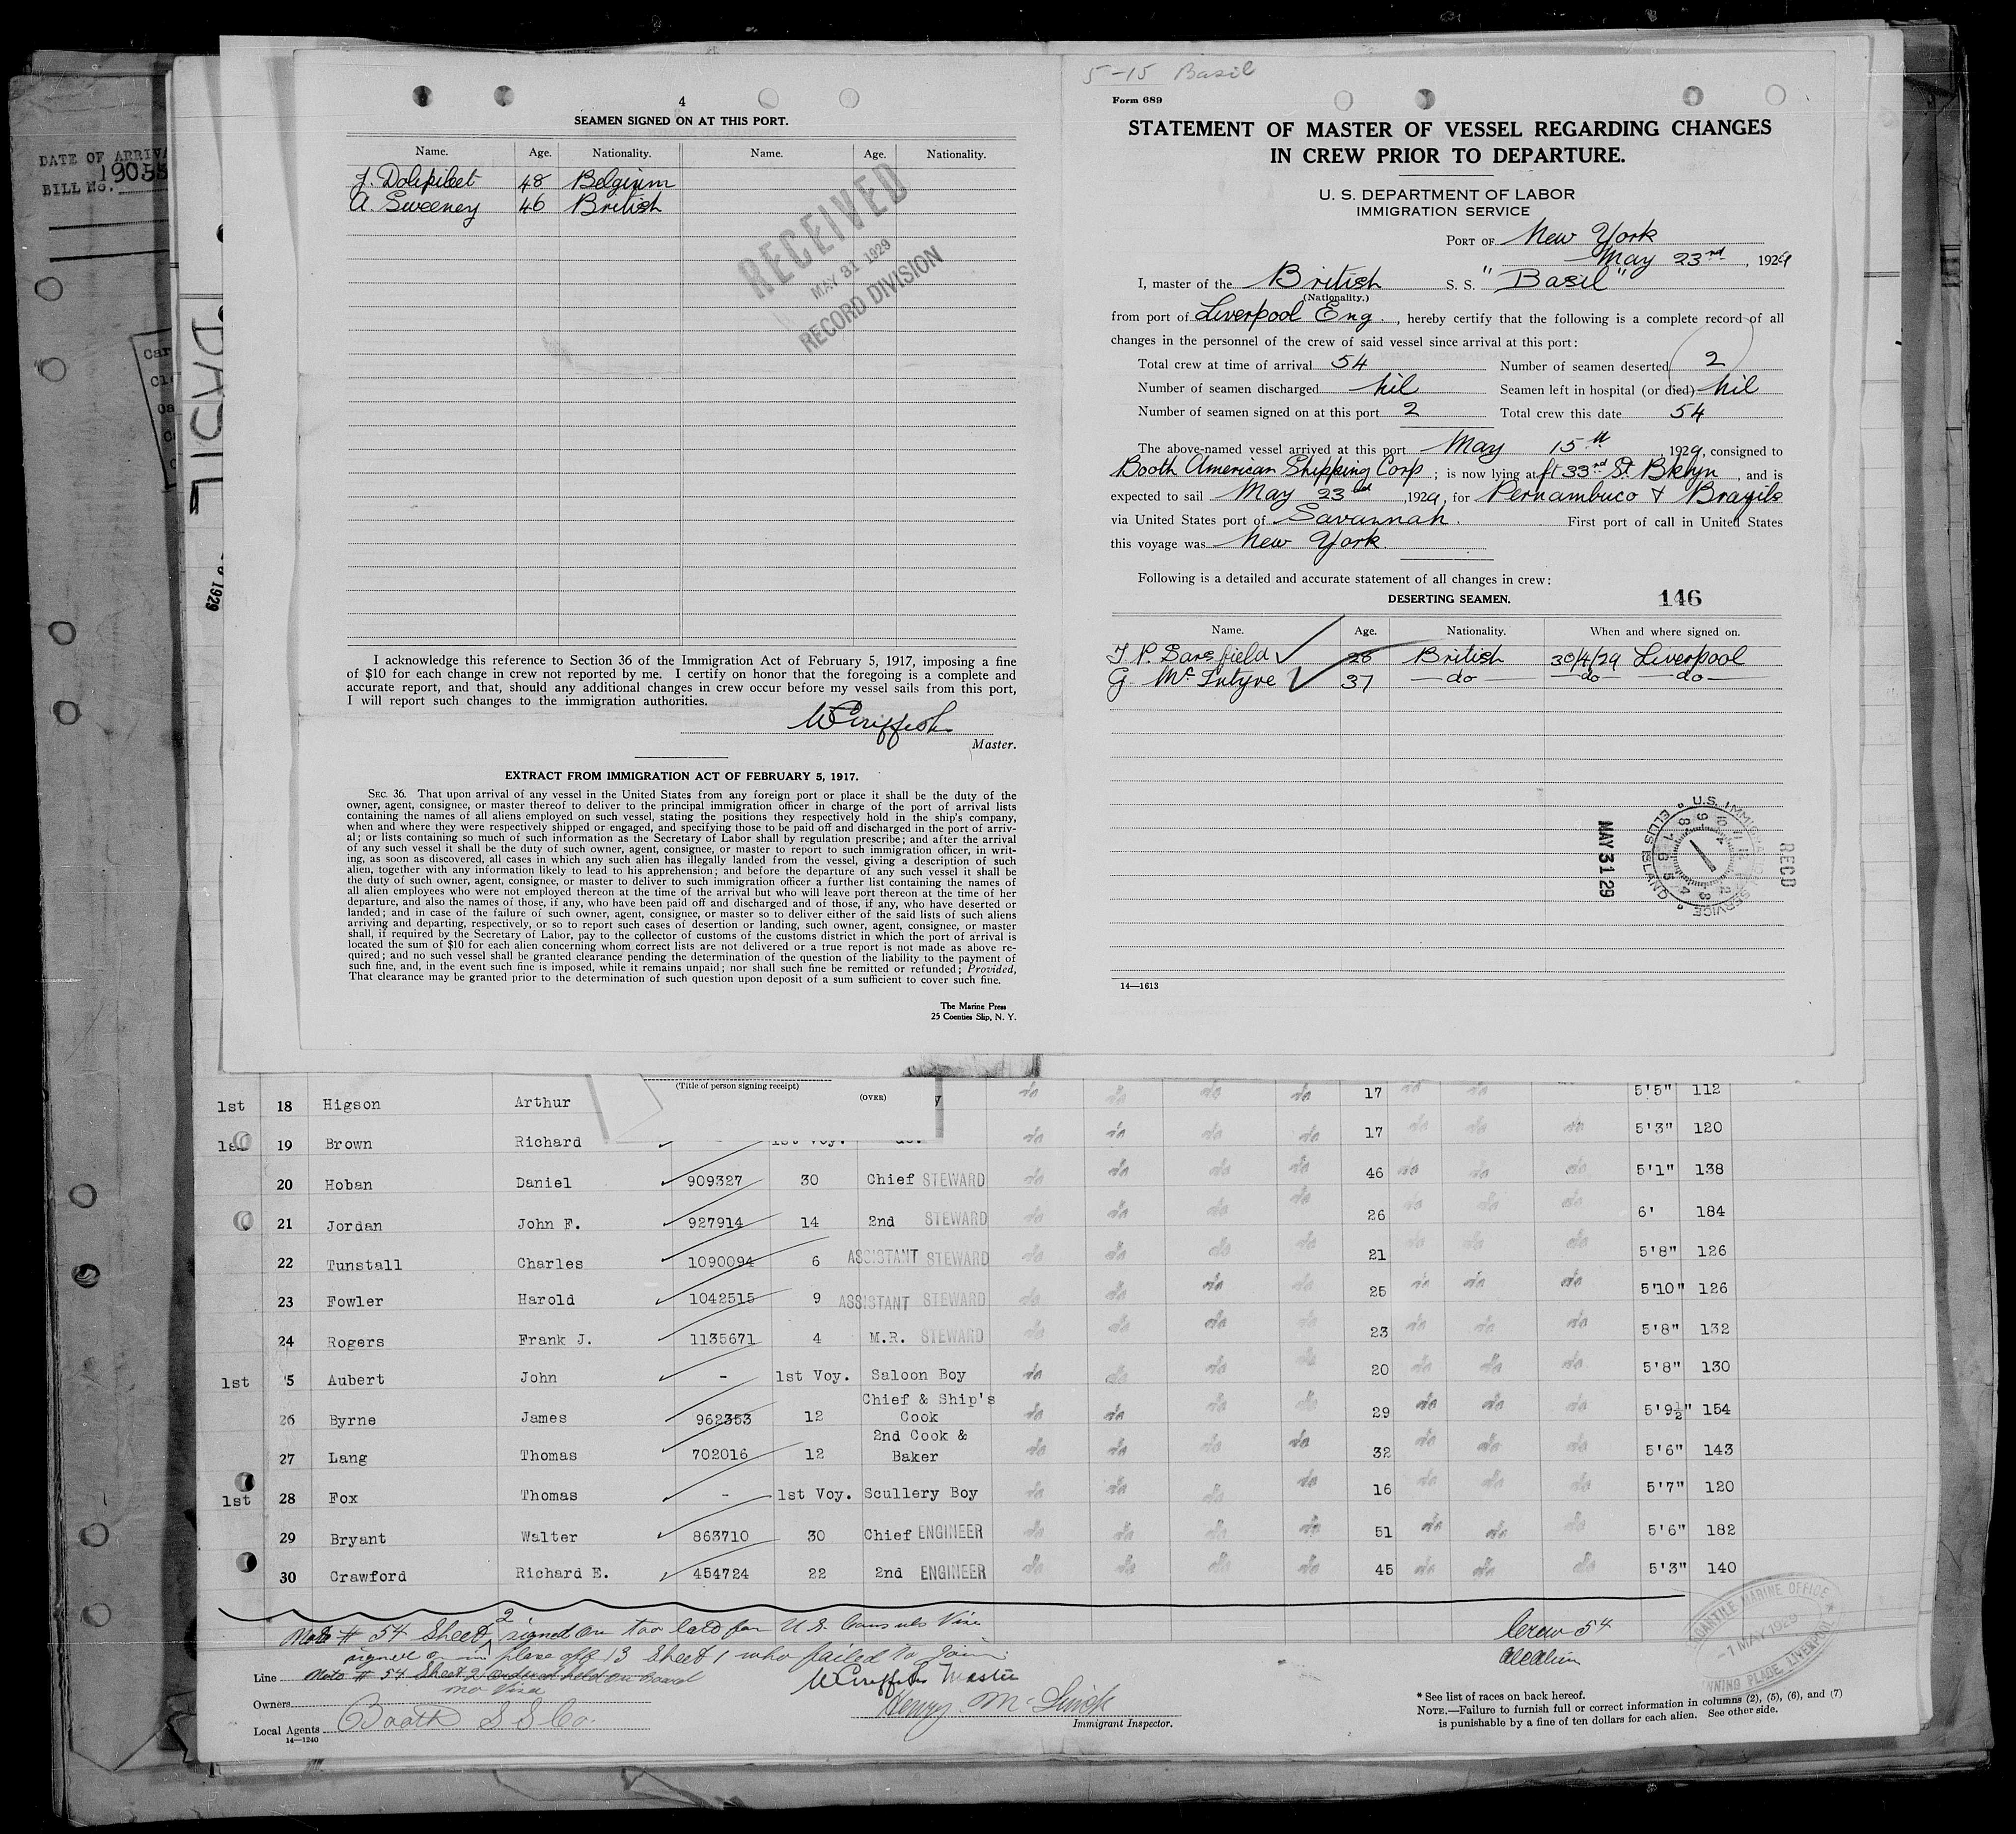 DATE OF ARRIVA
BILL No. 19055
Car
BASIL
1929
4
SEAMEN SIGNED ON AT THIS PORT.
Name. Age. Nationality. Name. Age. Nationality.
J. 48 Belgium
A. Sweeney 46 British
RECEIVED
MAY 31 1929
RECORD DIVISION
I acknowledge this reference to Section 36 of the Immigration Act of February 5, 1917, imposing a fine
of $10 for each change in crew not reported by me. I certify on honor that the foregoing is a complete and
accurate report, and that, should any additional changes in crew occur before my vessel sails from this port,
I will report such changes to the immigration authorities.
W Griffiths
Master.
EXTRACT FROM IMMIGRATION ACT OF FEBRUARY 5, 1917.
SEC. 36. That upon arrival of any vessel in the United States from any foreign port or place it shall be the duty of the
owner, agent, consignee, or master thereof to deliver to the principal immigration officer in charge of the port of arrival lists
containing the names of all aliens employed on such vessel, stating the positions they respectively hold in the ship's company,
when and where they were respectively shipped or engaged, and specifying those to be paid off and discharged in the port of arriv-
al; or lists containing so much of such information as the Secretary of Labor shall by regulation prescribe; and after the arrival
of any such vessel it shall be the duty of such owner, agent, consignee, or master to report to such immigration officer, in writ-
ing, as soon as discovered, all cases in which any such alien has illegally landed from the vessel, giving a description of such
alien, together with any information likely to lead to his apprehension; and before the departure of any such vessel it shall be
the duty of such owner, agent, consignee, or master to deliver to such immigration officer a further list containing the names of
all alien employees who were not employed thereon at the time of the arrival but who will leave port thereon at the time of her
departure, and also the names of those, if any, who have been paid off and discharged and of those, if any, who have deserted or
landed; and in case of the failure of such owner, agent, consignee, or master so to deliver either of the said lists of such aliens
arriving and departing, respectively, or so to report such cases of desertion or landing, such owner, agent, consignee, or master
shall, if required by the Secretary of Labor, pay to the collector of customs of the customs district in which the port of arrival is
located the sum of $10 for each alien concerning whom correct lists are not delivered or a true report is not made as above re-
quired; and no such vessel shall be granted clearance pending the determination of the question of the liability to the payment of
such fine, and, in the event such fine is imposed, while it remains unpaid; nor shall such fine be remitted or refunded; Provided,
That clearance may be granted prior to the determination of such question upon deposit of a sum sufficient to cover such fine.
The Marine Press
25 Coenties Slip, N. Y.
5-15 Basil
Form 689
STATEMENT OF MASTER OF VESSEL REGARDING CHANGES
IN CREW PRIOR TO DEPARTURE.
U. S. DEPARTMENT OF LABOR
IMMIGRATION SERVICE
PORT OF New York
May 23rd, 1929
I, master of the British S. S. "Basil"
(Nationality.)
from port of Liverpool Eng., hereby certify that the following is a complete record of all
changes in the personnel of the crew of said vessel since arrival at this port:
Total crew at time of arrival 54 Number of seamen deserted 2
Number of seamen discharged nil Seamen left in hospital (or died) nil
Number of seamen signed on at this port 2 Total crew this date 54
The above-named vessel arrived at this port May 15th, 1929, consigned to
Booth American Shipping Corp; is now lying at ft 33rd St. Bklyn, and is
expected to sail May 23rd, 1929, for Pernambuco & Brazils
via United States port of Savannah. First port of call in United States
this voyage was New York
Following is a detailed and accurate statement of all changes in crew:
DESERTING SEAMEN. 146
Name. Age. Nationality. When and where signed on.
Sarsfield 28 British 30/4/29 Liverpool
G. McIntyre 37 do do do
U.S. IMMIGRATION SERVICE ELLIS ISLAND
RECD
MAY 31 29
14—1613
(Title of person signing receipt)
(OVER)
1st 18 Higson Arthur do do do do 17 do do 5'5" 112
1st 19 Brown Richard - 1st Voy. do. do do do do 17 do do do 5'3" 120
20 Hoban Daniel 909327 30 Chief STEWARD do do do do 46 do do do 5'1" 138
21 Jordan John F. 927914 14 2nd STEWARD do do do do 26 do do do 6' 184
22 Tunstall Charles 1090094 6 ASSISTANT STEWARD do do do do 21 do do do 5'8" 126
23 Fowler Harold 1042515 9 ASSISTANT STEWARD do do do do 25 do do do 5'10" 126
24 Rogers Frank J. 1135671 4 M.R. STEWARD do do do do 23 do do do 5'8" 132
1st 5 Aubert John - 1st Voy. Saloon Boy do do do do 20 do do do 5'8" 130
26 Byrne James 962353 12 Chief & Ship's Cook do do do do 29 do do do 5'9½" 154
27 Lang Thomas 702016 12 2nd Cook & Baker do do do do 32 do do do 5'6" 143
1st 28 Fox Thomas - 1st Voy. Scullery Boy do do do do 16 do do do 5'7" 120
29 Bryant Walter 863710 30 Chief ENGINEER do do do do 51 do do do 5'6" 182
30 Crawford Richard E. 454724 22 2nd ENGINEER do do do do 45 do do do 5'3" 140
Note # 54 Sheet 2 signed on too late for U.S. Consuls Visa
signed on in place of # 13 Sheet 1 who failed to join
Line Note # 54 Sheet 2 held on board
no Visa
W Griffiths Master
Crew 54
All Alien
Owners
Local Agents Booth S S Co.
14—1240
Immigrant Inspector.
MERCANTILE MARINE OFFICE
- 1 MAY 1929
LIVERPOOL
* See list of races on back hereof.
NOTE.—Failure to furnish full or correct information in columns (2), (5), (6), and (7)
is punishable by a fine of ten dollars for each alien. See other side.